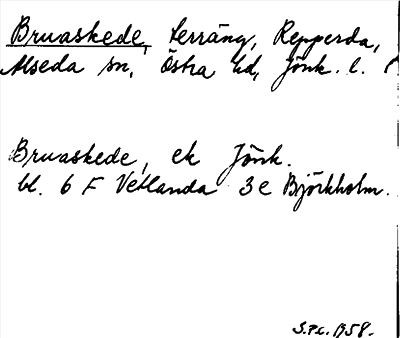 Bruaskede, terräng, Repperda,
Alseda sn, Östra hd, Jönk. l.
Bruaskede, ek Jönk.
bl. 6 F Vetlanda 3e Björkholm.
S.P.C. 1958.